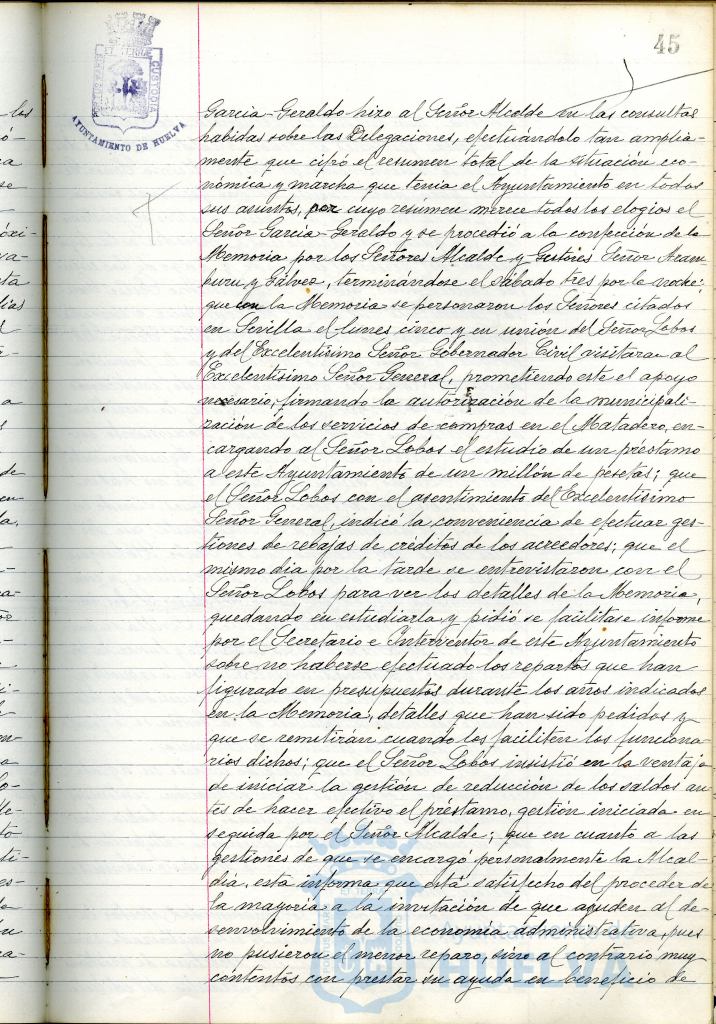 45
AYUNTAMIENTO DE HUELVA
García-Geraldo hizo al Señor Alcalde en las consultas
habidas sobre las Delegaciones, efectuándolo tan amplia-
mente que cifró el resumen total de la situación eco-
nómica y marcha que tenia el Ayuntamiento en todos
sus asuntos, por cuyo resúmen merece todos los elogios el
Señor García-Geraldo y se procedió a la confección de la
Memoria por los Señores Alcalde y Gestores Señor Aram-
buru y Gálvez, terminándose el sábado tres por la noche;
que con la Memoria se personaron los Señores citados
en Sevilla el lunes cinco y en unión del Señor Lobos
y del Excelentísimo Señor Gobernador Civil visitaran al
Excelentísimo Señor General, prometiendo este el apoyo
necesario, firmando la autorización de la municipali-
zación de los servicios de compras en el Matadero, en-
cargando al Señor Lobos el estudio de un préstamo
a este Ayuntamiento de un millón de pesetas; que
el Señor Lobos con el asentimiento del Excelentísimo
Señor General, indicó la conveniencia de efectuar ges-
tiones de rebajas de créditos de los acreedores; que el
mismo día por la tarde se entrevistaron con el
Señor Lobos para ver los detalles de la Memoria,
quedando en estudiarla y pidió se facilitase informe
por el Secretario e Interventor de este Ayuntamiento
sobre no haberse efectuado los repartos que han
figurado en presupuestos durante los años indicados
en la Memoria, detalles que han sido pedidos y
que se remitirán cuando los faciliten los funciona-
rios dichos; que el Señor Lobos insistió en la ventaja
de iniciar la gestión de reducción de los saldos an-
tes de hacer efectivo el préstamo, gestión iniciada en
seguida por el Señor Alcalde; que en cuanto a las
gestiones de que se encargó personalmente la Alcal-
día, esta informa que está satisfecho del proceder de
la mayoría a la invitación de que ayuden al de-
senvolvimiento de la economía administrativa, pues
no pusieron el menor reparo, sino al contrario muy
contentos con prestar su ayuda en beneficio de
Ayuntamiento de
HUELVA